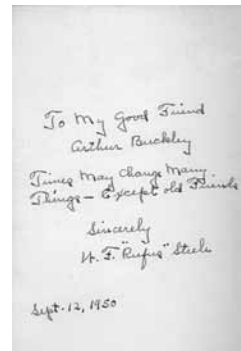 To My Good Friend
Arthur Buckley
Times May Change Many
Things - Except old Friends
Sincerely
W. F. "Rufus" Steele
Sept. 12, 1950